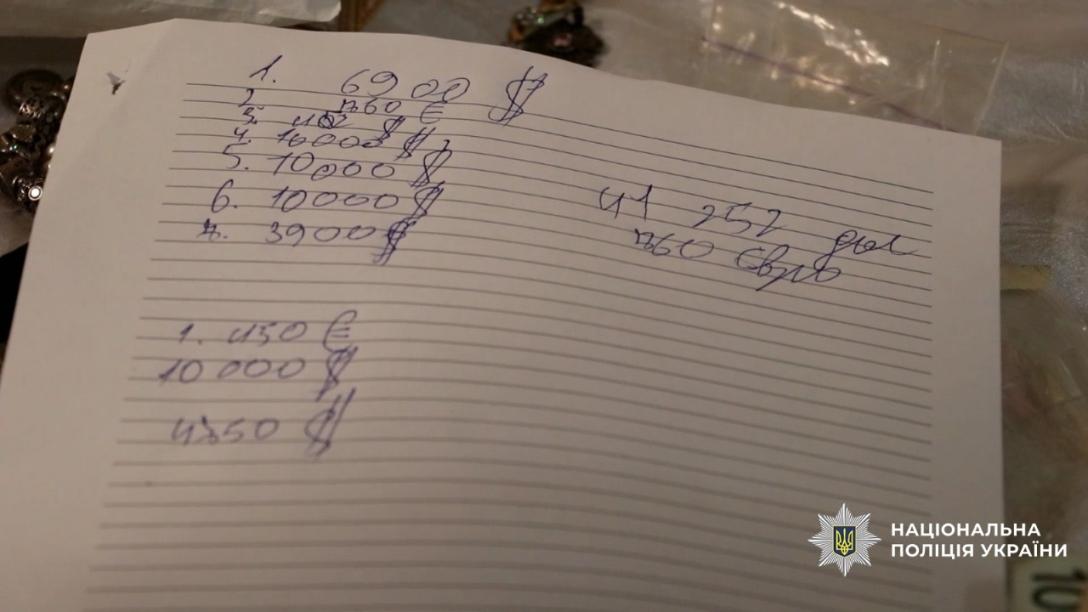 1. 6900 $
2. 760 €
3. 452 $
4. 10000 $
5. 10000 $
6. 10000 $
7. 3900 $
41 252 дол
760 євро
1. 450 €
10 000 $
4750 $
НАЦІОНАЛЬНА
ПОЛІЦІЯ УКРАЇНИ
10